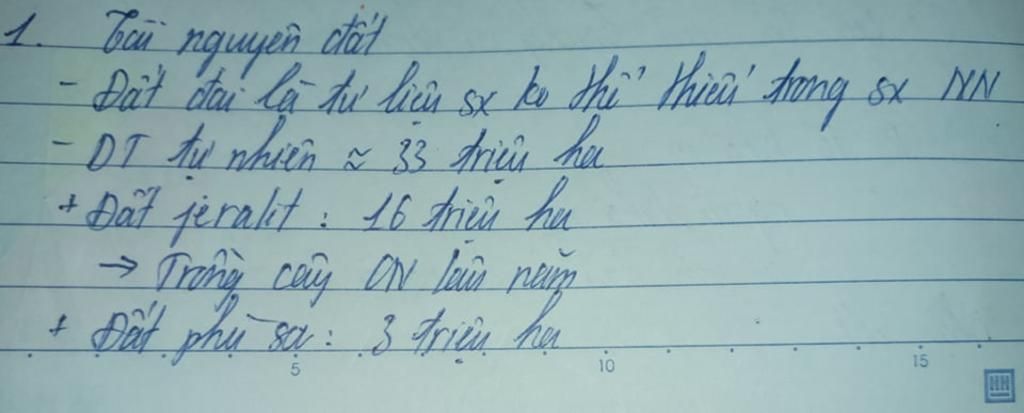 1. Tài nguyên đất
- Đất đai là tư liệu sx ko thể thiếu trong sx NN
- DT tự nhiên ≈ 33 triệu ha
+ Đất feralit : 16 triệu ha
→ Trồng cây CN lâu năm
+ Đất phù sa : 3 triệu ha
5 10 15
HH